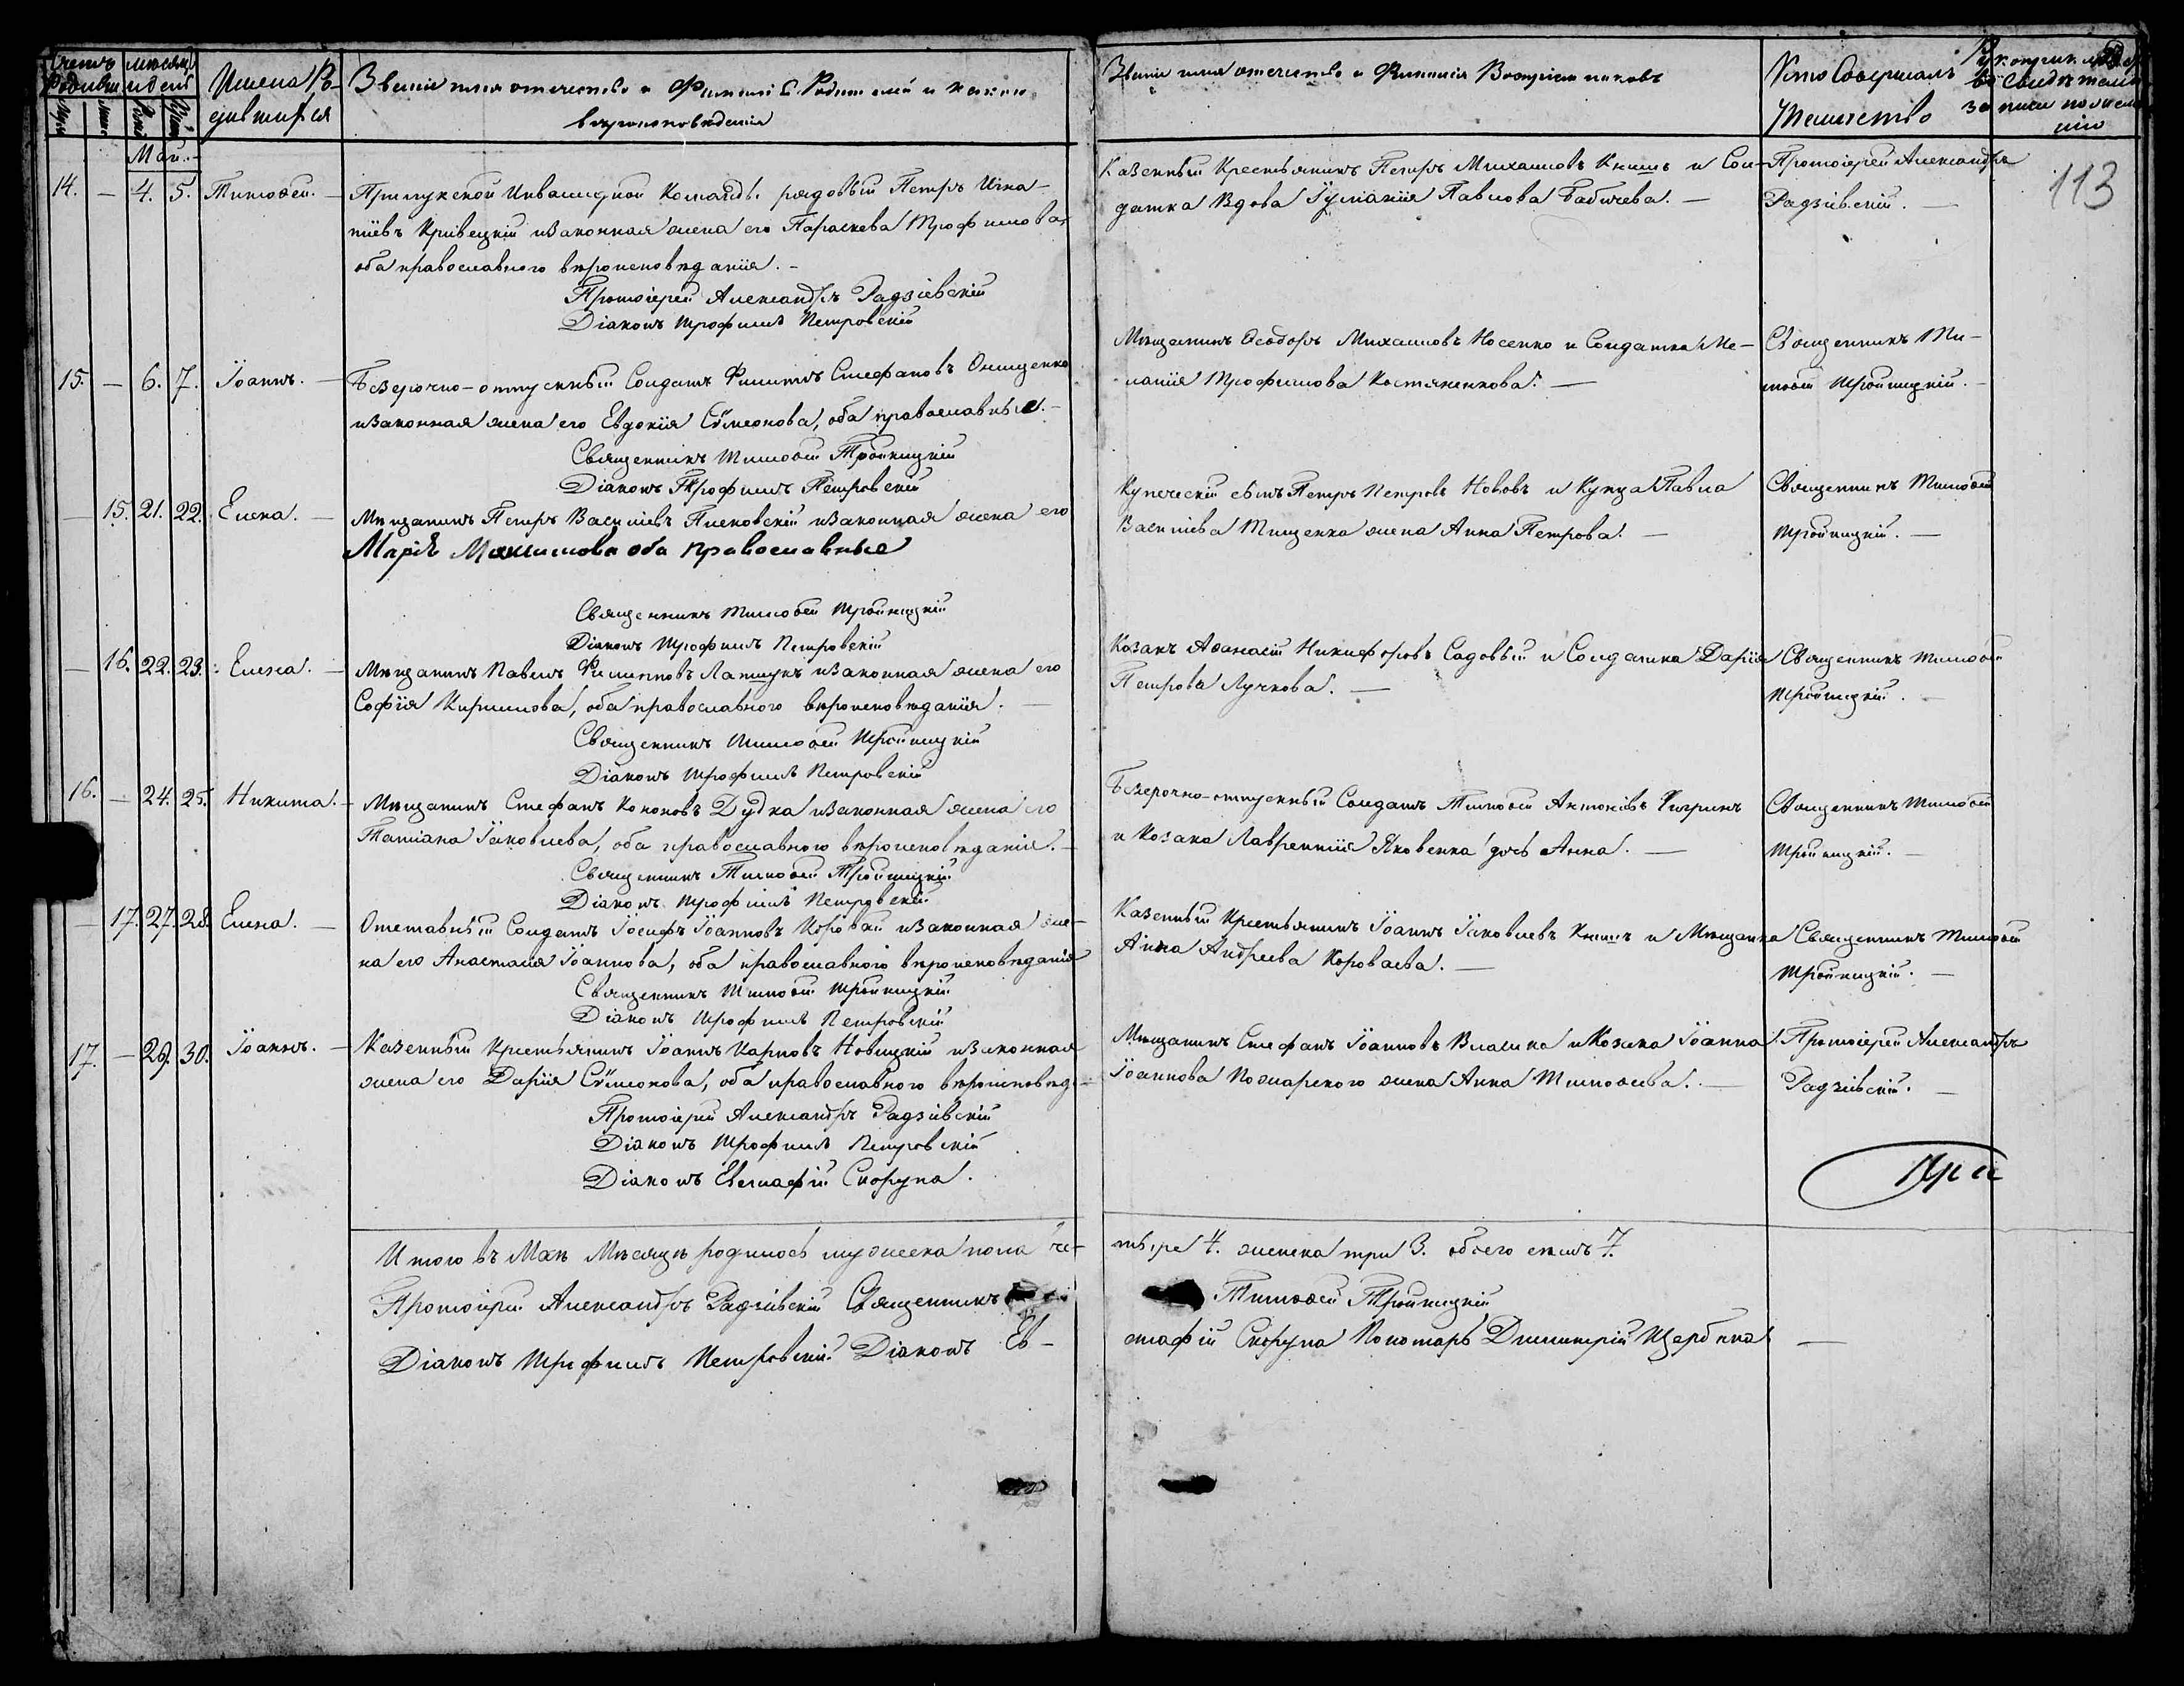 Счетъ родивш. Мѣсяцъ и день
Имена Родившихся
Званіе имя отечество и Фамилія Родителей и какого
вѣроисповѣданія
Званіе имя отечество и Фамилія Воспріемниковъ
Кто Совершалъ
Таинство
113
Май.
14. — 4. 5. Тимоѳей. — Прилукской Инвалидной Команды рядовый Петръ Игна-
тіевъ Кривецкій и законная жена его Параскева Трофимова,
оба православного вѣроисповѣданія. —
Протоіерей Александръ Радзіевскій
Діаконъ Трофимъ Петровскій
Казенный Крестьянинъ Петръ Михаиловъ Книшъ и Сол-
датка Вдова Іуліанія Павлова Бабичева. —
Протоіерей Александръ
Радзіевскій. —
15. — 6. 7. Іоаннъ. — Безсрочно-отпускный Солдатъ Филипъ Стефановъ Онищенко
и законная жена его Евдокія Сѵмеонова, оба православные. —
Священникъ Тимоѳей Тройницкій
Діаконъ Трофимъ Петровскій
Мѣщанинъ Ѳеодоръ Михаиловъ Носенко и Солдатка Ме-
ланія Трофимова Костяненкова. —
Священникъ Ти-
моѳей Тройницкій. —
15. 21. 22. Елена. — Мѣщанинъ Петръ Василіевъ Писковскій и законная жена его
Марія Максимова оба православные
Священникъ Тимоѳей Тройницкій
Діаконъ Трофимъ Петровскій
Купеческій сынъ Петръ Петровъ Нововъ и Купца Павла
Василіева Тищенка жена Анна Петрова. —
Священникъ Тимоѳей
Тройницкій. —
— 16. 22. 23. Елена. — Мѣщанинъ Павелъ Филиповъ Лапшукъ и законная жена его
Софія Кирилова, оба православного вѣроисповѣданія. —
Священникъ Тимоѳей Тройницкій
Діаконъ Трофимъ Петровскій
Козакъ Аѳанасій Никифоровъ Садовый и Солдатка Дарія
Петрова Лучкова. —
Священникъ Тимоѳей
Тройницкій. —
16. — 24. 25. Никита. — Мѣщанинъ Стефанъ Кононовъ Дудка и законная жена его
Татіана Іаковлева, оба православного вѣроисповѣданія. —
Священникъ Тимоѳей Тройницкій
Діаконъ Трофимъ Петровскій
Безсрочно-отпускный Солдатъ Тимоѳей Антоніевъ Чигринъ
и Козака Лаврентія Яковенка дочь Анна. —
Священникъ Тимоѳей
Тройницкій. —
— 17. 27. 28. Елена. — Отставный Солдатъ Іосифъ Іоанновъ Коровай и законная же-
на его Анастасія Іоаннова, оба православного вѣроисповѣданія
Священникъ Тимоѳей Тройницкій
Діаконъ Трофимъ Петровскій
Казенный Крестьянинъ Іоаннъ Іаковлевъ Книшъ и Мѣщанка
Анна Андреева Короваева. —
Священникъ Тимоѳей
Тройницкій. —
17. — 29. 30. Іоаннъ. — Казенный Крестьянинъ Іоаннъ Карповъ Новицкій и законная
жена его Дарія Сѵмеонова, оба православного вѣроисповѣд. —
Протоіерей Александръ Радзіевскій
Діаконъ Трофимъ Петровскій
Діаконъ Евстафій Скорупа.
Мѣщанинъ Стефанъ Іоанновъ Власика и Козака Іоанна
Іоаннова Пожарского жена Анна Тимоѳеева. —
Протоіерей Александръ
Радзіевскій. —
Итого въ Маѣ Мѣсяцѣ родилось мужеска пола че-
тыре 4. женска три 3. обоего семь 7.
Протоіерей Александръ Радзіевскій Священникъ
Тимоѳей Тройницкій
Діаконъ Трофимъ Петровскій Діаконъ Ев-
стафій Скорупа Пономарь Димитрій Щербина —